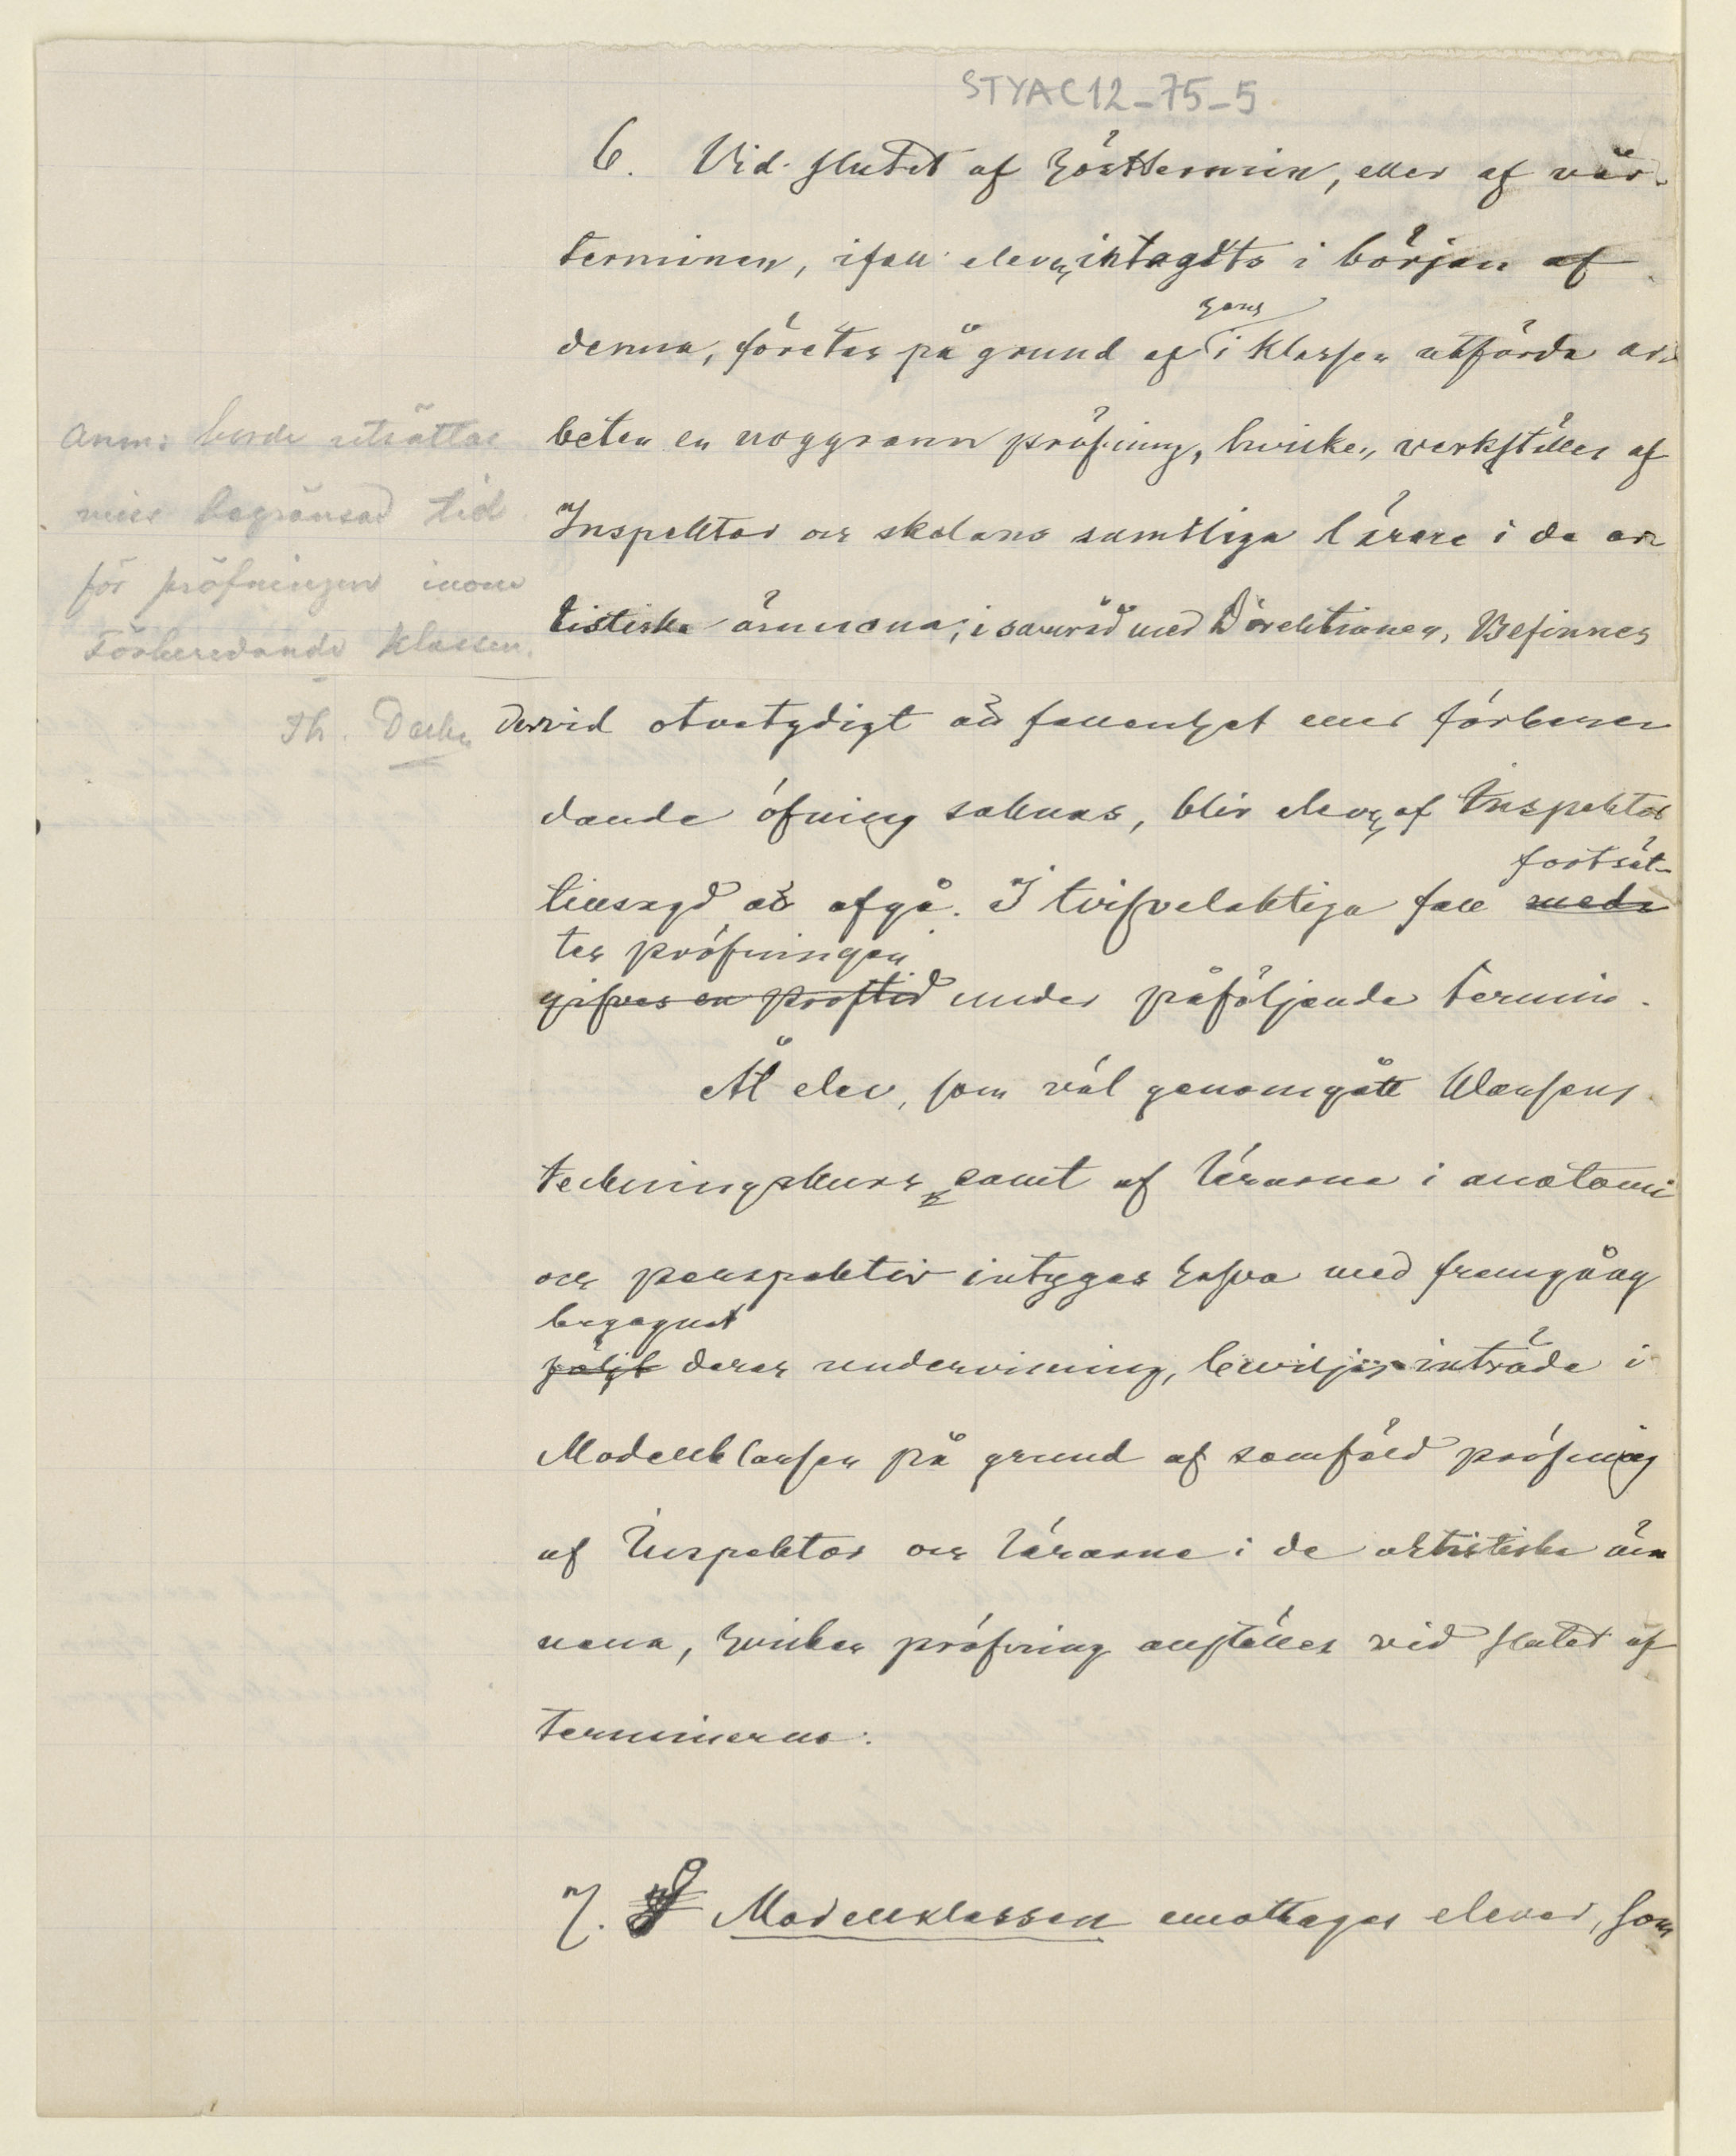 STYAC12_75_5
6. Vid slutet af hösttermin, eller af vår-
terminen, ifall eleven intagits i början af
hans
denna, företas på grund af i klassen utförda ar-
beten en noggrann pröfning, hvilken verkställes af
Inspektor och skolans samtliga lärare i de ar-
tistiska ämnena, i samråd med Direktionen. Befinnes
Anm: borde
viss begränsad tid
för pröfningen inom
Förberedande klassen.
Th.
dervid otvetydigt att fallenhet eller förbere-
dande öfning saknas, blir eleven af Inspektor
fortsät-
tillsagd att afgå. I tvifvelaktiga fall med-
tes pröfningen
gifves en proftid under påföljande termin.
Åt elev, som väl genomgått klassens
teckningskurs samt af lärarne i anatomi
och perspektiv intygas hafva med framgång
begagnat
följt deras undervisning, beviljas inträde i
Modellklassen på grund af samfäld pröfning
af Inspektor och lärarne i de artistiska äm-
nena, hvilken pröfning anställes vid slutet af
terminerna.
7. I Modellklassen emottagas elever, som